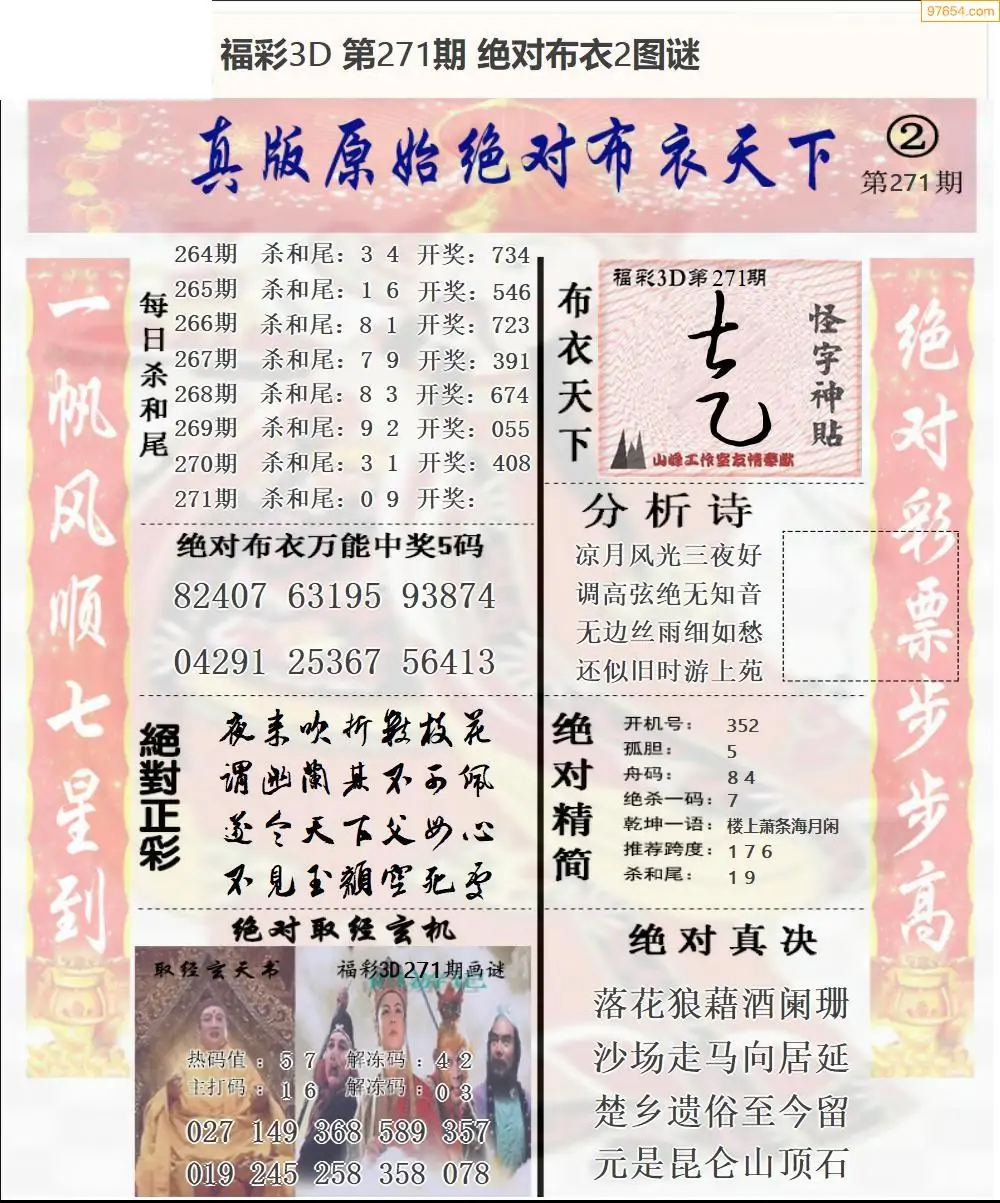 97654.com
福彩3D 第271期 绝对布衣2图谜
真版原始绝对布衣天下
②
第271期
一帆风顺七星到
每日杀和尾
264期 杀和尾：3 4 开奖：734
265期 杀和尾：1 6 开奖：546
266期 杀和尾：8 1 开奖：723
267期 杀和尾：7 9 开奖：391
268期 杀和尾：8 3 开奖：674
269期 杀和尾：9 2 开奖：055
270期 杀和尾：3 1 开奖：408
271期 杀和尾：0 9 开奖：
绝对布衣万能中奖5码
82407 63195 93874
04291 25367 56413
絕對正彩
夜来吹折数枝花
谓幽蘭其不可佩
遂令天下父母心
不見玉顏空死處
绝对取经玄机
取经玄天书
福彩3D271期画谜
热码值：5 7 解冻码：4 2
主打码：1 6 解冻码：0 3
027 149 368 589 357
019 245 258 358 078
布衣天下
福彩3D第271期
怪字神貼
山峰工作室友情奉献
分析诗
凉月风光三夜好
调高弦绝无知音
无边丝雨细如愁
还似旧时游上苑
绝对精简
开机号：352
孤胆：5
舟码：8 4
绝杀一码：7
乾坤一语：楼上萧条海月闲
推荐跨度：1 7 6
杀和尾：1 9
绝对真决
落花狼藉酒阑珊
沙场走马向居延
楚乡遗俗至今留
元是昆仑山顶石
绝对彩票步步高